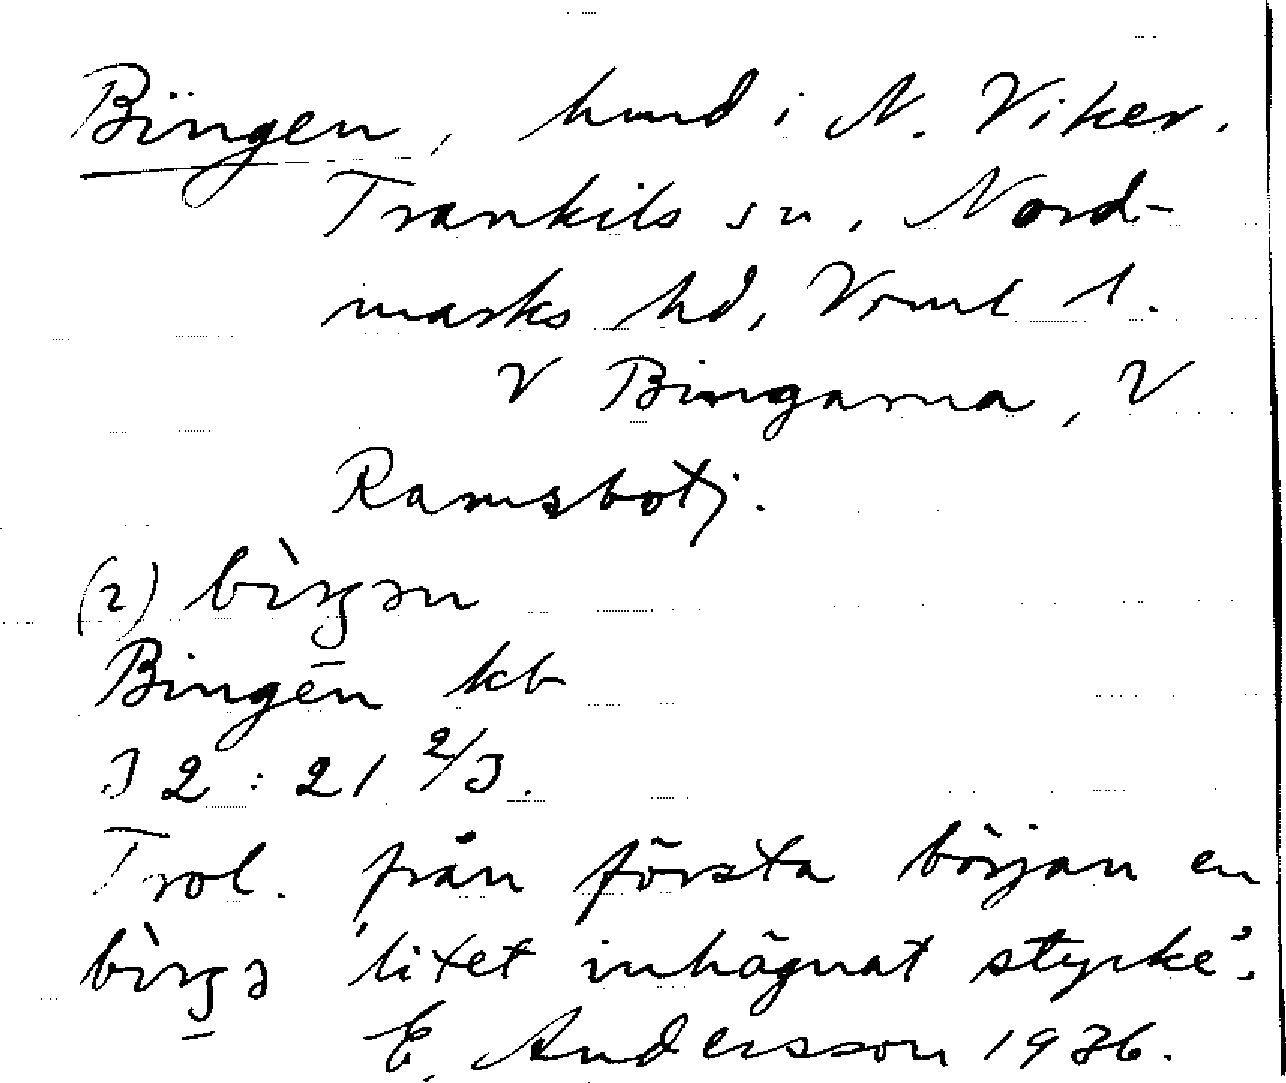 Bingen, hmd i N. Viker.
Trankils sn, Nord-
marks hd, Vrml l.
V Bingarna, V
Ramsbotj.
(2) bìŋgən
Bingen kb
J 2 : 21 2/3.
Trol. från första början en
bìŋgə 'litet inhägnat stycke'.
E. Andersson 1936.